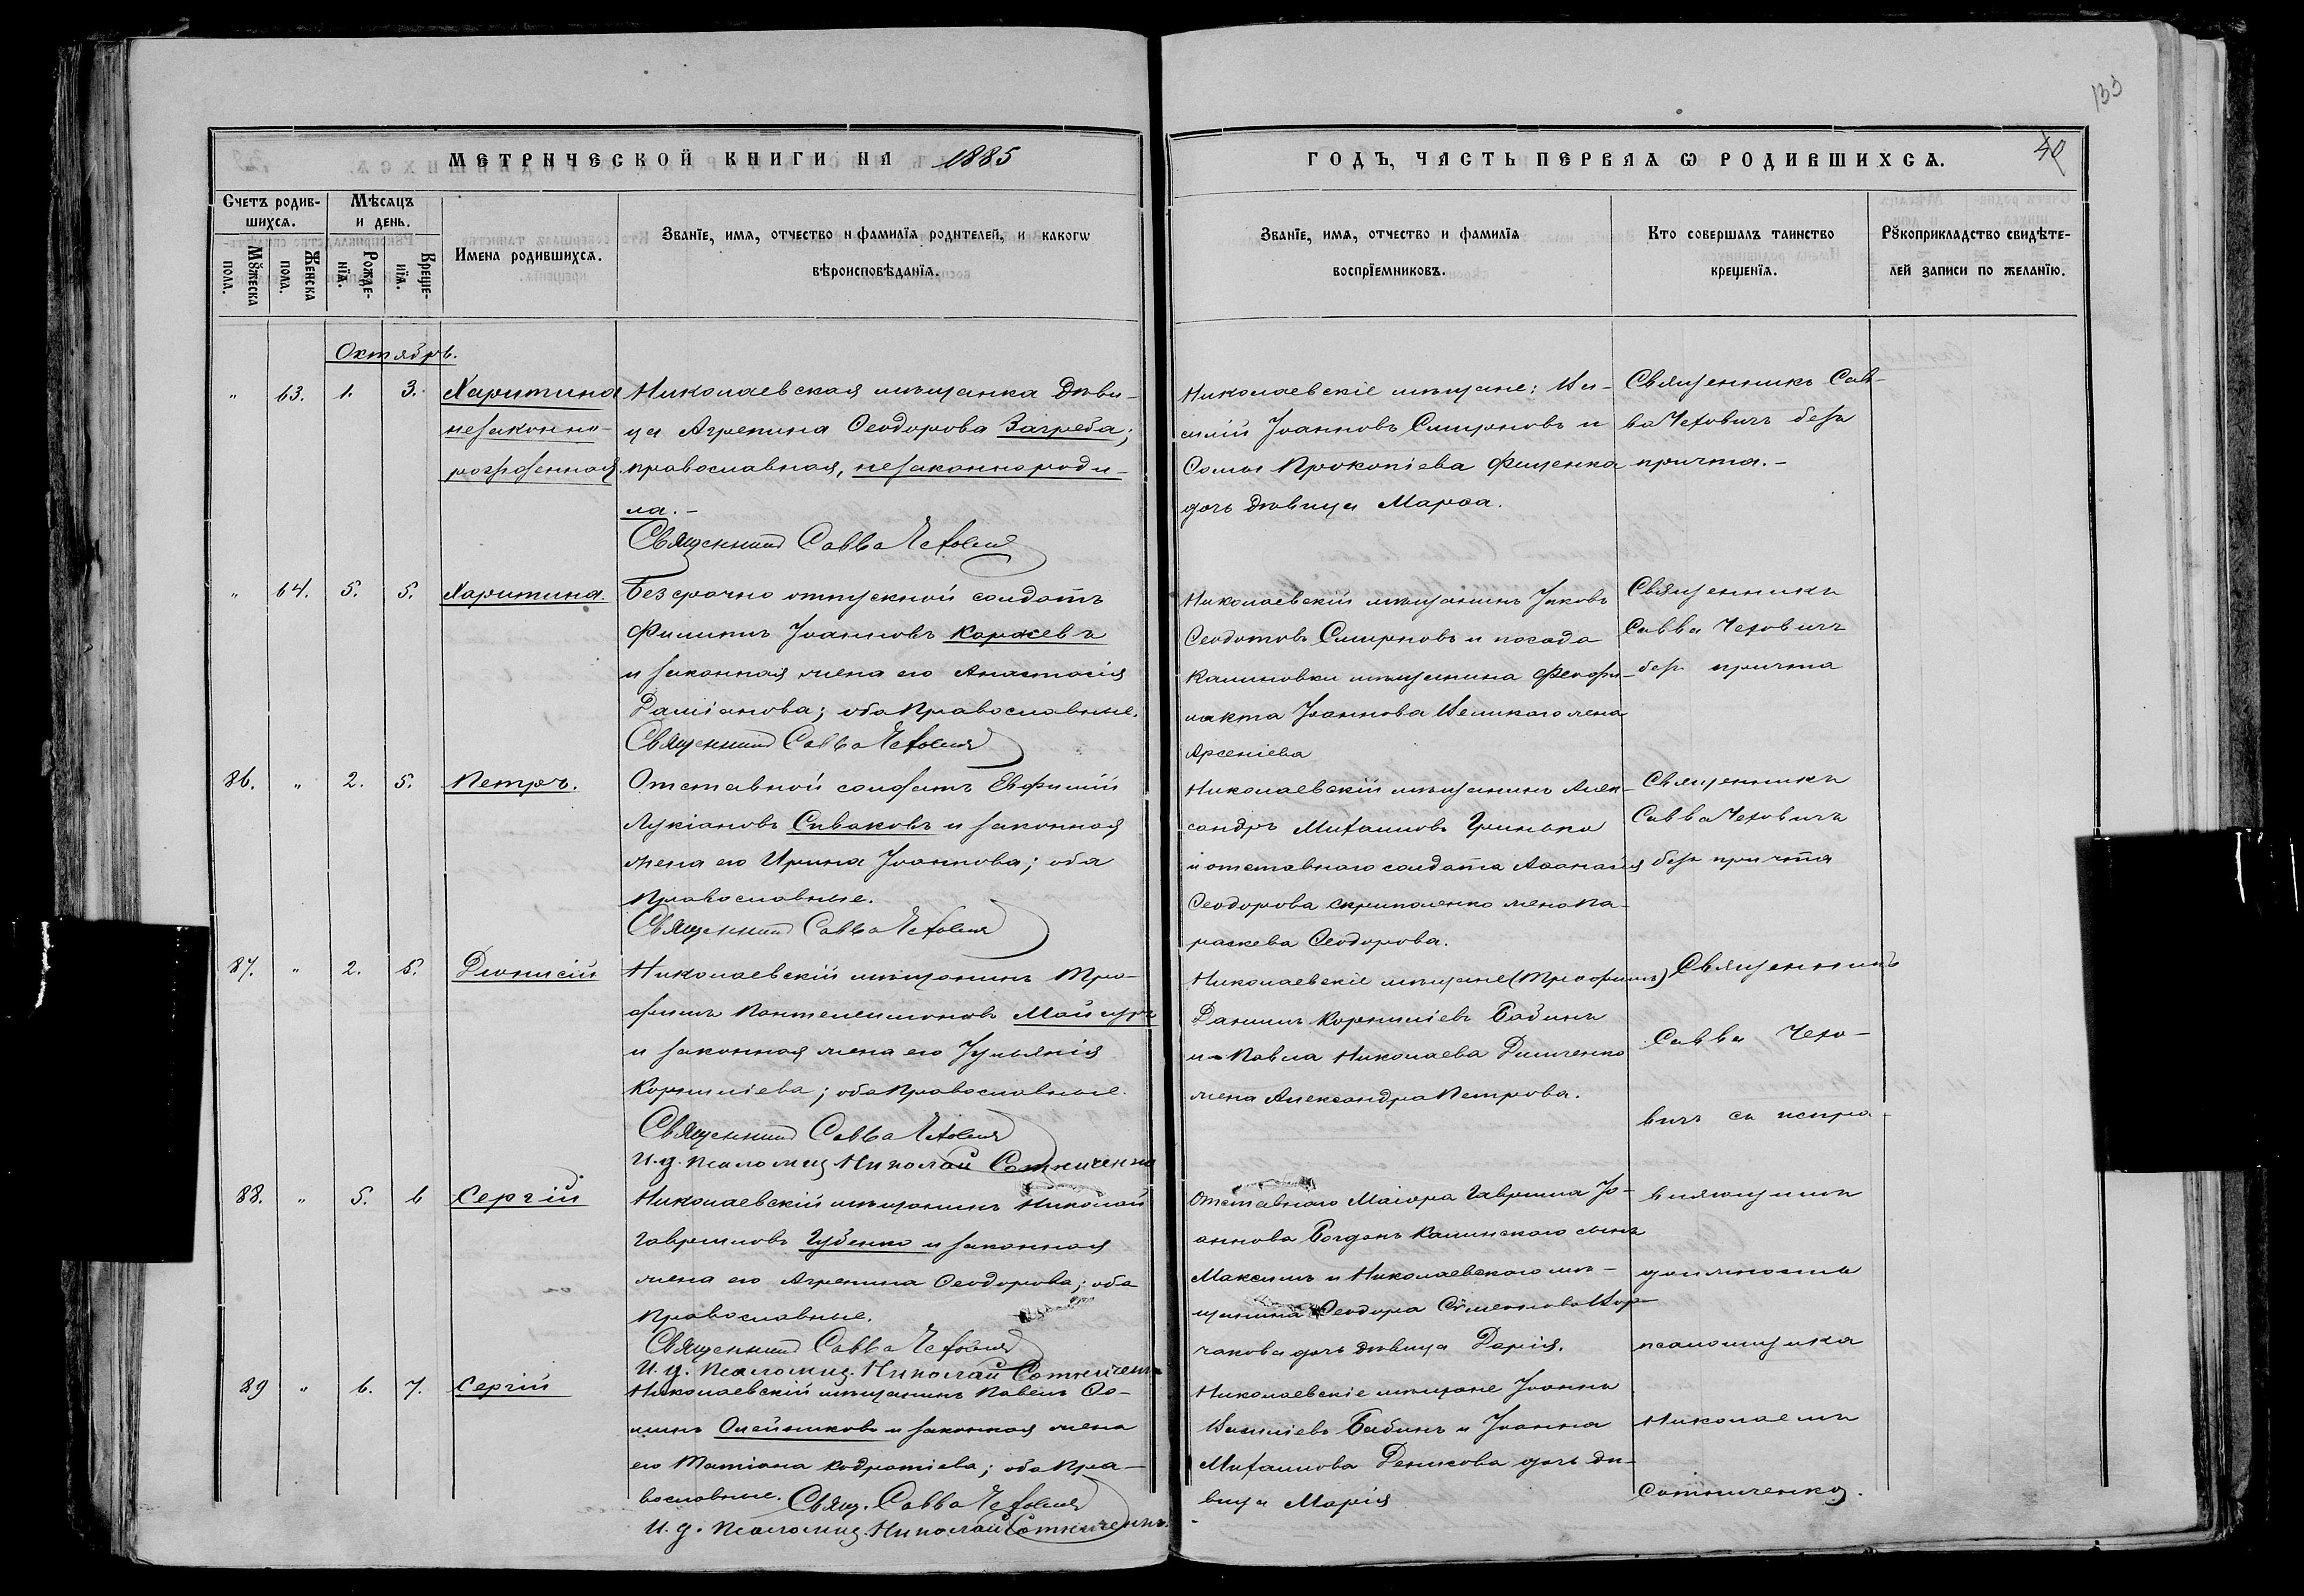 133
МЕТРИЧЕСКОЙ КНИГИ НА 1885
ГОДЪ, ЧАСТЬ ПЕРВАЯ Ѡ РОДИВШИХСѦ.
40
Счетъ родив-
шихсѧ.
Мѣсѧцъ
и день.
Мꙋжеска
пола.
Женска
пола.
Рожде-
нїѧ.
Креще-
нїѧ.
Имена родившихсѧ.
Званїе, имѧ, отчество и фамилїѧ родителей, и какогѡ
вѣроисповѣданїѧ.
Званїе, имѧ, отчество и фамилїѧ
воспрїемниковъ.
Кто совершалъ таинство
крещенїѧ.
Рꙋкоприкладство свидѣте-
лей записи по желанїю.
Октябрь.
" 63. 1. 3. Харитина
незаконно-
рожденная
Николаевская мѣщанка Дѣви-
ца Агрепина Ѳеодорова Загреба;
православная, незаконно роди-
ла.-
Священникъ Савва Чехович
Николаевскіе мѣщане: Ва-
силій Іоанновъ Смирновъ и
Сомы Прокопіева Фищенка
дочь дѣвица Марѳа.
Священникъ Сав-
ва Чеховичъ безъ
причта.-
" 64. 5. 5. Харитина.
Безсрочно отпускной солдатъ
Филиппъ Іоанновъ Коржевъ
и законная жена его Анастасія
Даміанова; оба Православные.
Священникъ Савва Чехович
Николаевскій мѣщанинъ Іаковъ
Ѳеодотовъ Смирновъ и посада
Калиновки мѣщанина Феофи-
лакта Іоаннова Великаго жена
Арсеніева
Священникъ
Савва Чеховичъ
безъ причта
86. " 2. 5. Петръ.
Отставной солдатъ Евфимій
Лукіановъ Сиваковъ и законная
жена его Ирина Іоаннова; оба
Православные.
Священникъ Савва Чехович
Николаевскій мѣщанинъ Алек-
сандръ Михаиловъ Гринько
и отставнаго солдата Аѳанасія
Ѳеодорова Скрипаленко жена Па-
раскева Ѳеодорова.
Священникъ
Савва Чеховичъ
безъ причта
87. " 2. 5. Діонисій
Николаевскій мѣщанинъ Тро-
фимъ Пантелеимоновъ Майгуръ
и законная жена его Іуліанія
Корниліева; оба Православные.
Священникъ Савва Чехович
И. д. псаломщ Николай Сотниченко
Николаевскіе мѣщане (Трофимъ)
Даниилъ Корниліевъ Бабинъ
и Павла Николаева Димченко
жена Александра Петрова.
Священникъ
Савва Чехо-
вичъ съ испра-
88. " 5. 6 Сергій
Николаевскій мѣщанинъ Николай
Гавриловъ Губенко и законная
жена его Агрепина Ѳеодорова; оба
Православные.
Священникъ Савва Чехович
И. д. Псаломщ. Николай Сотниченко
Отставнаго Маіора Гавриила Іо-
аннова Богданъ Калинскаго сынъ
Максимъ и Николаевскаго мѣ-
щанина Ѳеодора Сѵмеонова Кор-
чакова дочь дѣвица Дарія.
вляющимъ
должность
псаломщика
89 " 6. 7. Сергій
Николаевскій мѣщанинъ Павелъ Ѳо-
минъ Олейниковъ и законная жена
его Татіана Кодратіева; оба Пра-
вославные. Свящ. Савва Чехович
И. д. Псаломщ. Николай Сотниченко.
Николаевскіе мѣщане Іоаннъ
Василіевъ Бабинъ и Іоанна
Михаилова Денисова дочь дѣ-
вица Марія
Николаемъ
Сотниченко.